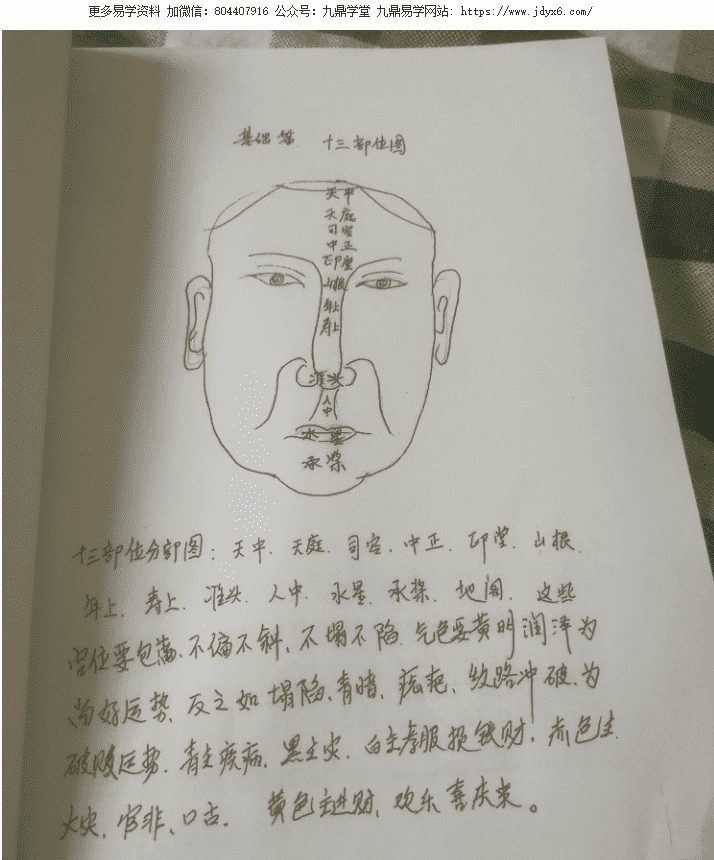 更多易学资料 加微信：804407916 公众号：九鼎学堂 九鼎易学网站：https://www.jdyx6.com/
基础篇 十三部位图
天中
天庭
司空
中正
印堂
山根
年上
寿上
准头
人中
水星
承浆
十三部位分部图：天中、天庭、司空、中正、印堂、山根、
年上、寿上、准头、人中、水星、承浆、地阁、这些
宫位要包满、不偏不斜、不塌不陷、气色要黄明润泽为
尚好运势、反之如塌陷、青暗、痣疤、纹路冲破、为
破败运势、青主疾病、黑主灾、白主孝服损钱财、赤色主
火灾、官非、口舌. 黄色主进财、欢乐喜庆来。